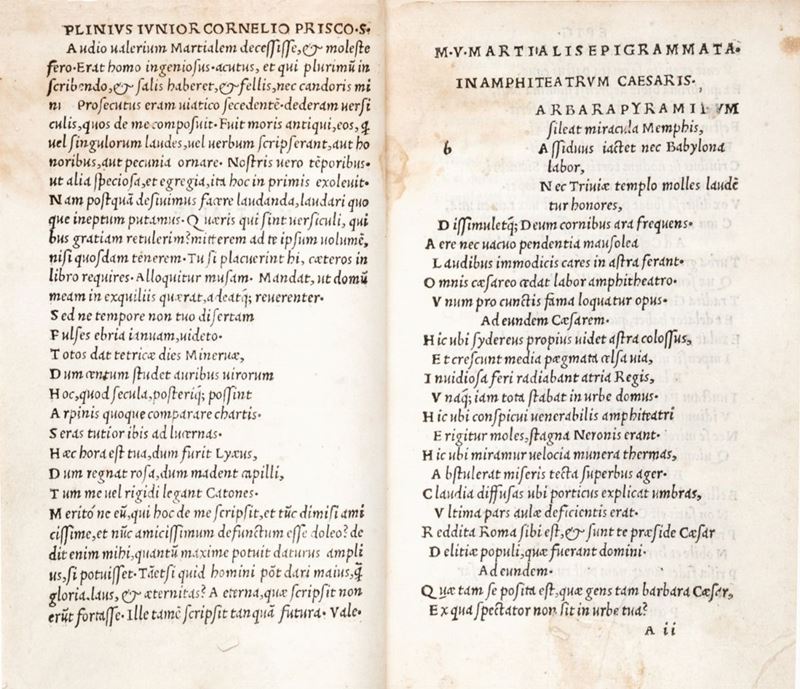 PLINIVS IVNIOR CORNELIO PRISCO·S·
Audio ualerium Martialem decessisse, & moleste
fero·Erat homo ingeniosus·acutus, et qui plurimũ in
scribendo, & salis haberet, & fellis, nec candoris mi
ni Prosecutus eram uiatico secedentẽ·dederam uersi
culis, quos de me composuit· Fuit moris antiqui, eos, q̃
uel singulorum laudes, uel uerbum scripserant, aut ho
noribus, aut pecunia ornare· Nostris uero tẽporibus·
ut alia speciosa, et egregia, ita hoc in primis exoleuit·
Nam postquã desiuimus facere laudanda, laudari quo
que ineptum putamus· Quæris qui sint uersiculi, qui
bus gratiam retulerim? mitterem ad te ipsum uolumẽ,
nisi quosdam tenerem· Tu si placuerint hi, cæteros in
libro requires· Alloquitur musam· Mandat, ut domũ
meam in exquiliis quærat, adeatq; reuerenter·
Sed ne tempore non tuo disertam
Pulses ebria ianuam, uideto·
Totos dat tetricæ dies Mineruæ,
Dum centum studet auribus uirorum
Hoc, quod secula, posteriq; possint
Arpinis quoque comparare chartis·
Seras tutior ibis ad lucernas·
Hæc hora est tua, dum furit Lyæus,
Dum regnat rosa, dum madent capilli,
Tum me uel rigidi legant Catones·
Merito ne eũ, qui hoc de me scripsit, et tũc dimisi ami
cissime, et nũc amicissimum defunctum esse doleo? de
dit enim mihi, quantũ maxime potuit daturus ampli
us, si potuisset· Tãetsi quid homini põt dari maius, q̃
gloria, laus, & æternitas? A eterna, quæ scripsit non
erũt fortasse· Ille tamẽ scripsit tanquã futura· Vale·
M·V·MARTIALIS EPIGRAMMATA·
IN AMPHITEATRVM CAESARIS·
b
ARBARA PYRAMIDVM
sileat miracula Memphis,
Assiduus iactet nec Babylona
labor,
Nec Triuiæ templo molles laudẽ
tur honores,
Dissimuletq; Deum cornibus ara frequens·
Aere nec uacuo pendentia mausolea
Laudibus immodicis cares in astra ferant·
Omnis cæsareo cædat labor amphitheatro·
Vnum pro cunctis fama loquatur opus·
Ad eundem Cæsarem·
Hic ubi sydereus propius uidet astra colossus,
Et crescunt media pægmata cælsa uia,
Inuidiosa feri radiabant atria Regis,
Vnaq; iam tota stabat in urbe domus·
Hic ubi conspicui uenerabilis amphiteatri
Erigitur moles, stagna Neronis erant·
Hic ubi miramur uelocia munera thermas,
Abstulerat miseris tecta superbus ager·
Claudia diffusas ubi porticus explicat umbras,
Vltima pars aulæ deficientis erat·
Reddita Roma sibi est, & sunt te præside Cæsar
Delitiæ populi, quæ fuerant domini·
Ad eundem·
Quæ tam se posita est, quæ gens tam barbara Cæsar,
Ex qua spectator non sit in urbe tua?
A ii